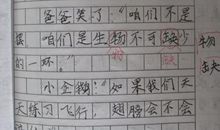 爸爸笑了:“咱们不是
摆,咱们是生物不可缺少
的一环。”
小企鹅:“如果我们天
天练习飞行,翅膀会不会
物
缺